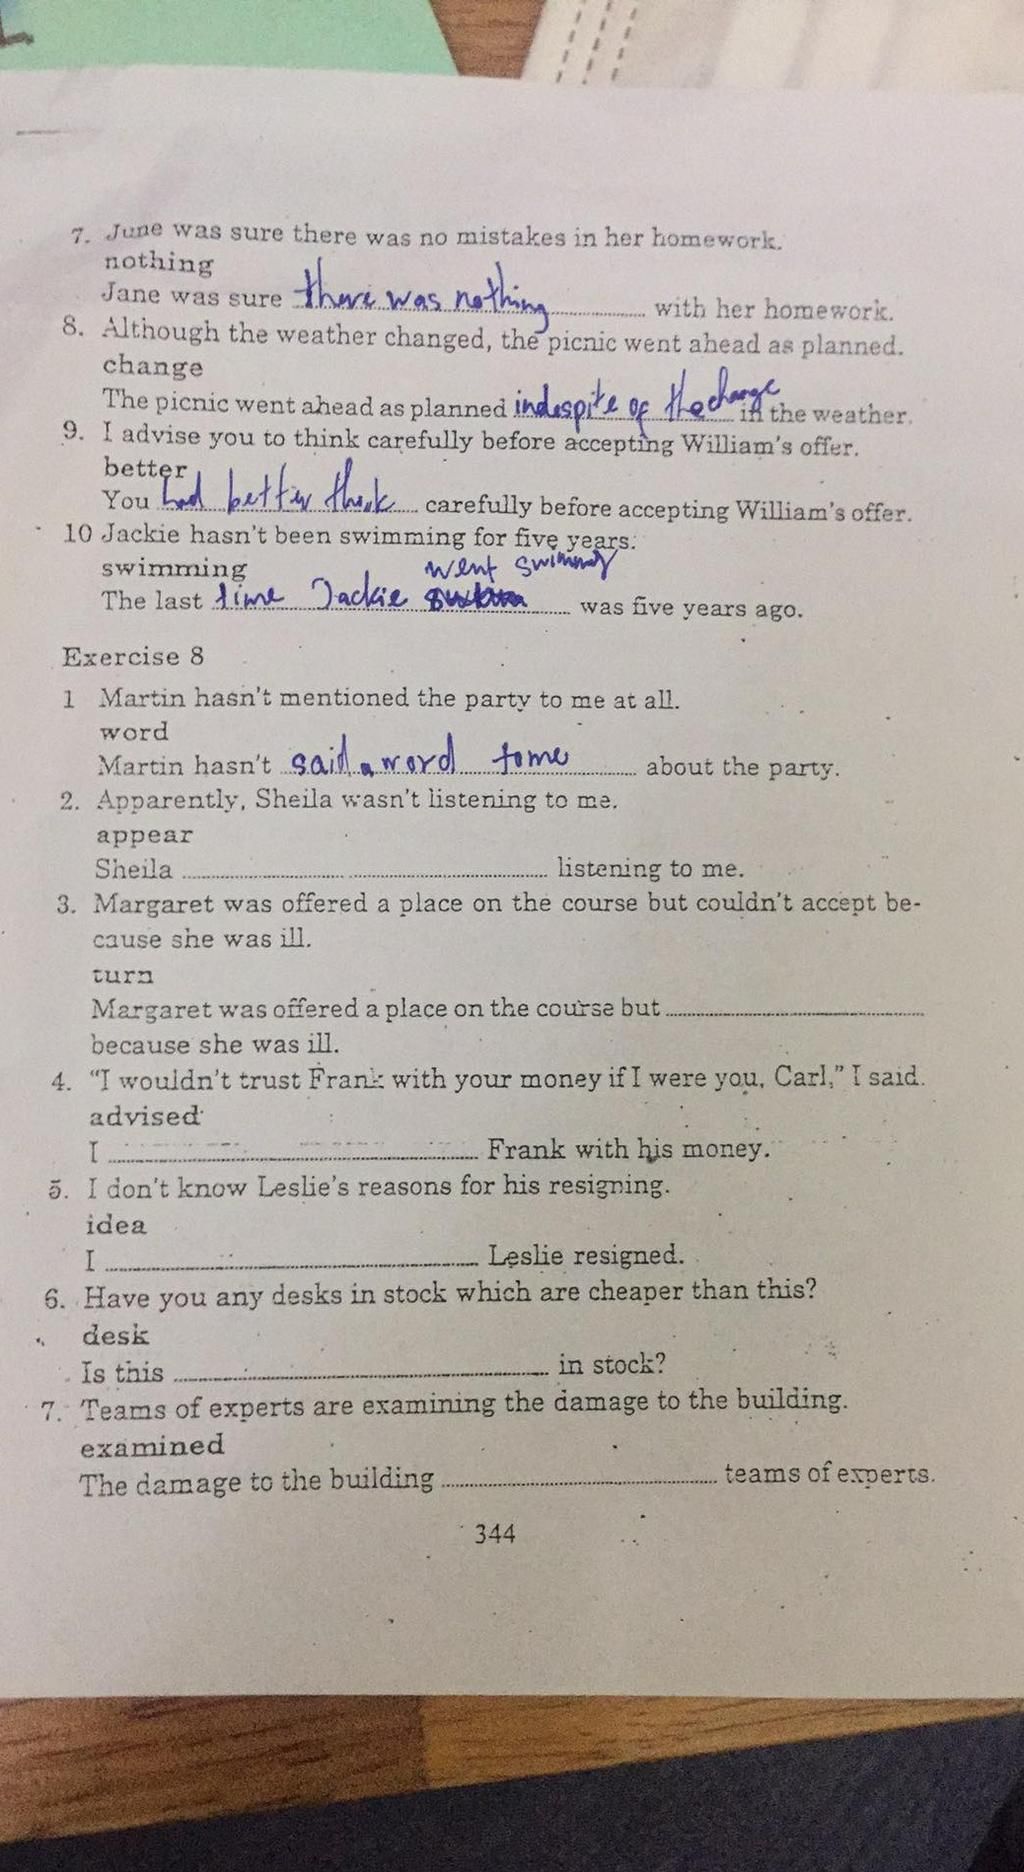 7. June was sure there was no mistakes in her homework.
nothing
Jane was sure there was nothing with her homework.
8. Although the weather changed, the picnic went ahead as planned.
change
The picnic went ahead as planned indespite of the change in the weather.
9. I advise you to think carefully before accepting William's offer.
better
You had better think carefully before accepting William's offer.
10 Jackie hasn't been swimming for five years.
swimming
went swimming
The last time Jackie was five years ago.
Exercise 8
1 Martin hasn't mentioned the party to me at all.
word
Martin hasn't said a word to me about the party.
2. Apparently, Sheila wasn't listening to me.
appear
Sheila listening to me.
3. Margaret was offered a place on the course but couldn't accept be-
cause she was ill.
turn
Margaret was offered a place on the course but
because she was ill.
4. "I wouldn't trust Frank with your money if I were you, Carl," I said.
advised
I Frank with his money.
5. I don't know Leslie's reasons for his resigning.
idea
I Leslie resigned.
6. Have you any desks in stock which are cheaper than this?
desk
Is this in stock?
7. Teams of experts are examining the damage to the building.
examined
The damage to the building teams of experts.
344